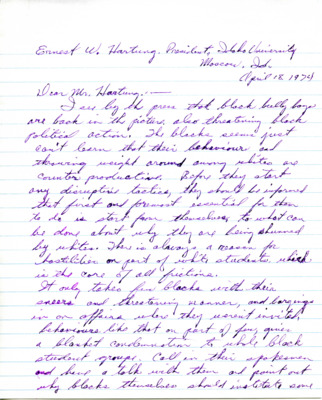 Ernest W. Hartung, President, Idaho University
Moscow, Id.
April 18 1974
Dear Mr. Hartung:—
I see by the press that black bully boys
are back in the picture, also threatening black
political action. The blacks seem just
can't learn that their behaviour and
throwing weight around among whites are
counter productive. Before they start
any disruptive tactics, they should be informed
that first and foremost essential for them
to do is start from themselves, to what can
be done about why they are being shunned
by whites. There is always a reason for
hostilities on part of white students which
is the core of all frictions.
It only takes few blacks with their
sneers and threatening manner, and barging
in on affairs where they weren't invited,
behaviours like that on part of few, gives
a blanket condemnation to whole black
student groups. Call in their spokesmen
and have a talk with them and point out
why blacks themselves should institute some